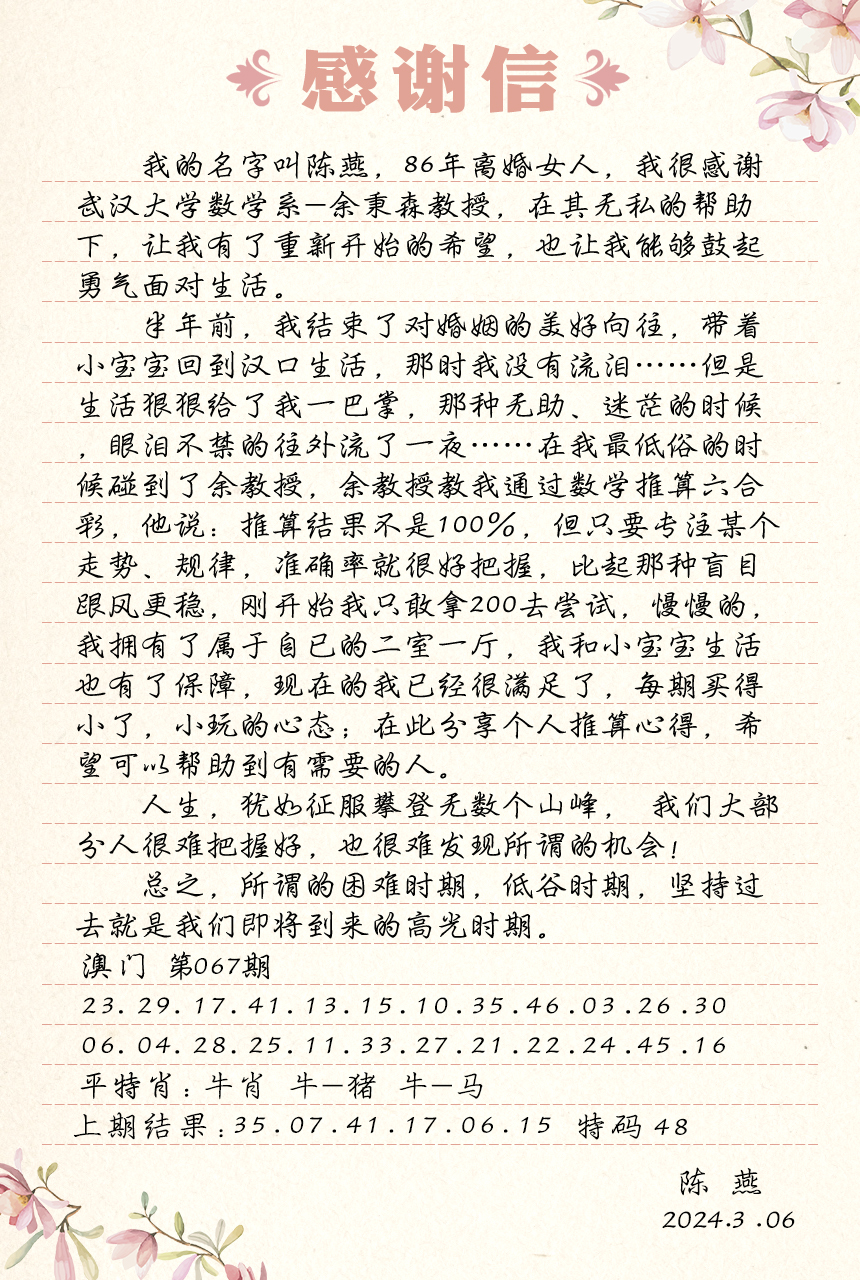 感谢信
我的名字叫陈燕，86年离婚女人，我很感谢
武汉大学数学系—余秉森教授，在其无私的帮助
下，让我有了重新开始的希望，也让我能够鼓起
勇气面对生活。
半年前，我结束了对婚姻的美好向往，带着
小宝宝回到汉口生活，那时我没有流泪……但是
生活狠狠给了我一巴掌，那种无助、迷茫的时候
，眼泪不禁的往外流了一夜……在我最低俗的时
候碰到了余教授，余教授教我通过数学推算六合
彩，他说：推算结果不是100%，但只要专注某个
走势、规律，准确率就很好把握，比起那种盲目
跟风更稳，刚开始我只敢拿200去尝试，慢慢的，
我拥有了属于自已的二室一厅，我和小宝宝生活
也有了保障，现在的我已经很满足了，每期买得
小了，小玩的心态；在此分享个人推算心得，希
望可以帮助到有需要的人。
人生，犹如征服攀登无数个山峰， 我们大部
分人很难把握好，也很难发现所谓的机会！
总之，所谓的困难时期，低谷时期，坚持过
去就是我们即将到来的高光时期。
澳门 第067期
23.29.17.41.13.15.10.35.46.03.26.30
06.04.28.25.11.33.27.21.22.24.45.16
平特肖：牛肖 牛—猪 牛—马
上期结果：35.07.41.17.06.15 特码 48
陈 燕
2024.3.06